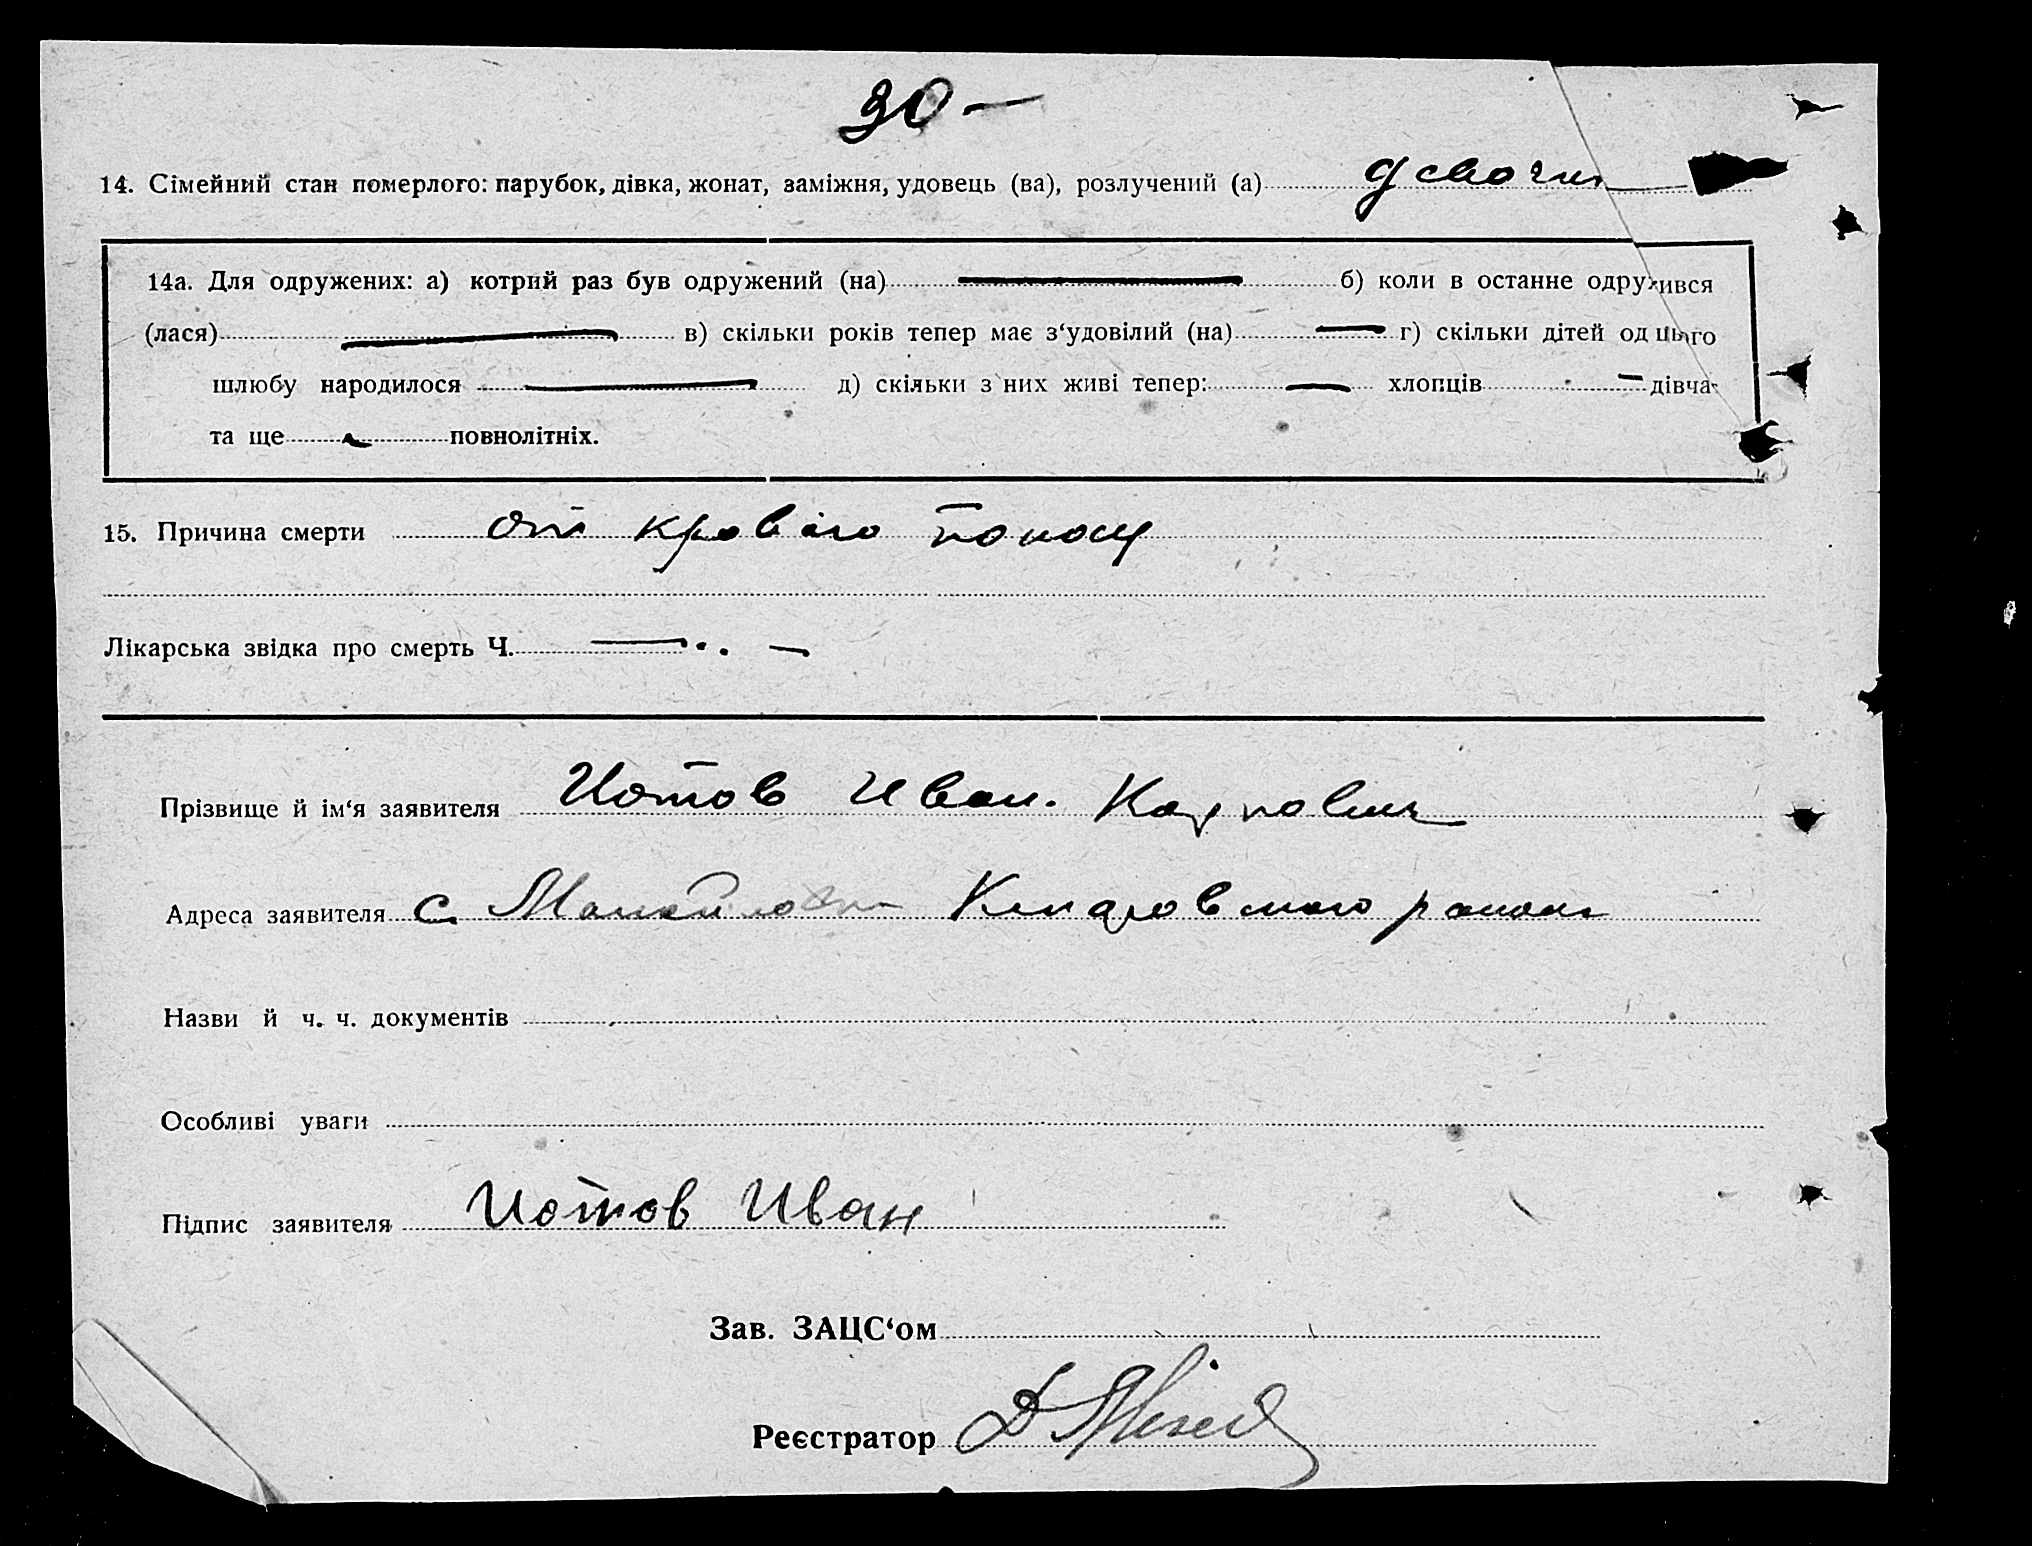 30 —
14. Сімейний стан померлого: парубок, дівка, жонат, заміжня, удовець (ва), розлучений (а)
14а. Для одружених: а) котрий раз був одружений (на) — б) коли в останне одружився
(лася) — в) скільки років тепер має з‘удовілий (на) — г) скільки дітей од цього
шлюбу народилося — д) скільки з них живі тепер: — хлопців — дівча-
та ще — повнолітніх.
15. Причина смерти от кроваго поносу
Лікарська звідка про смерть Ч. — —
Прізвище й ім‘я заявителя Иотов Иван. Карпович
Адреса заявителя с. района
Назви й ч. ч. документів
Особливі уваги
Підпис заявителя Иотов Иван
Зав. ЗАЦС‘ом
Реєстратор